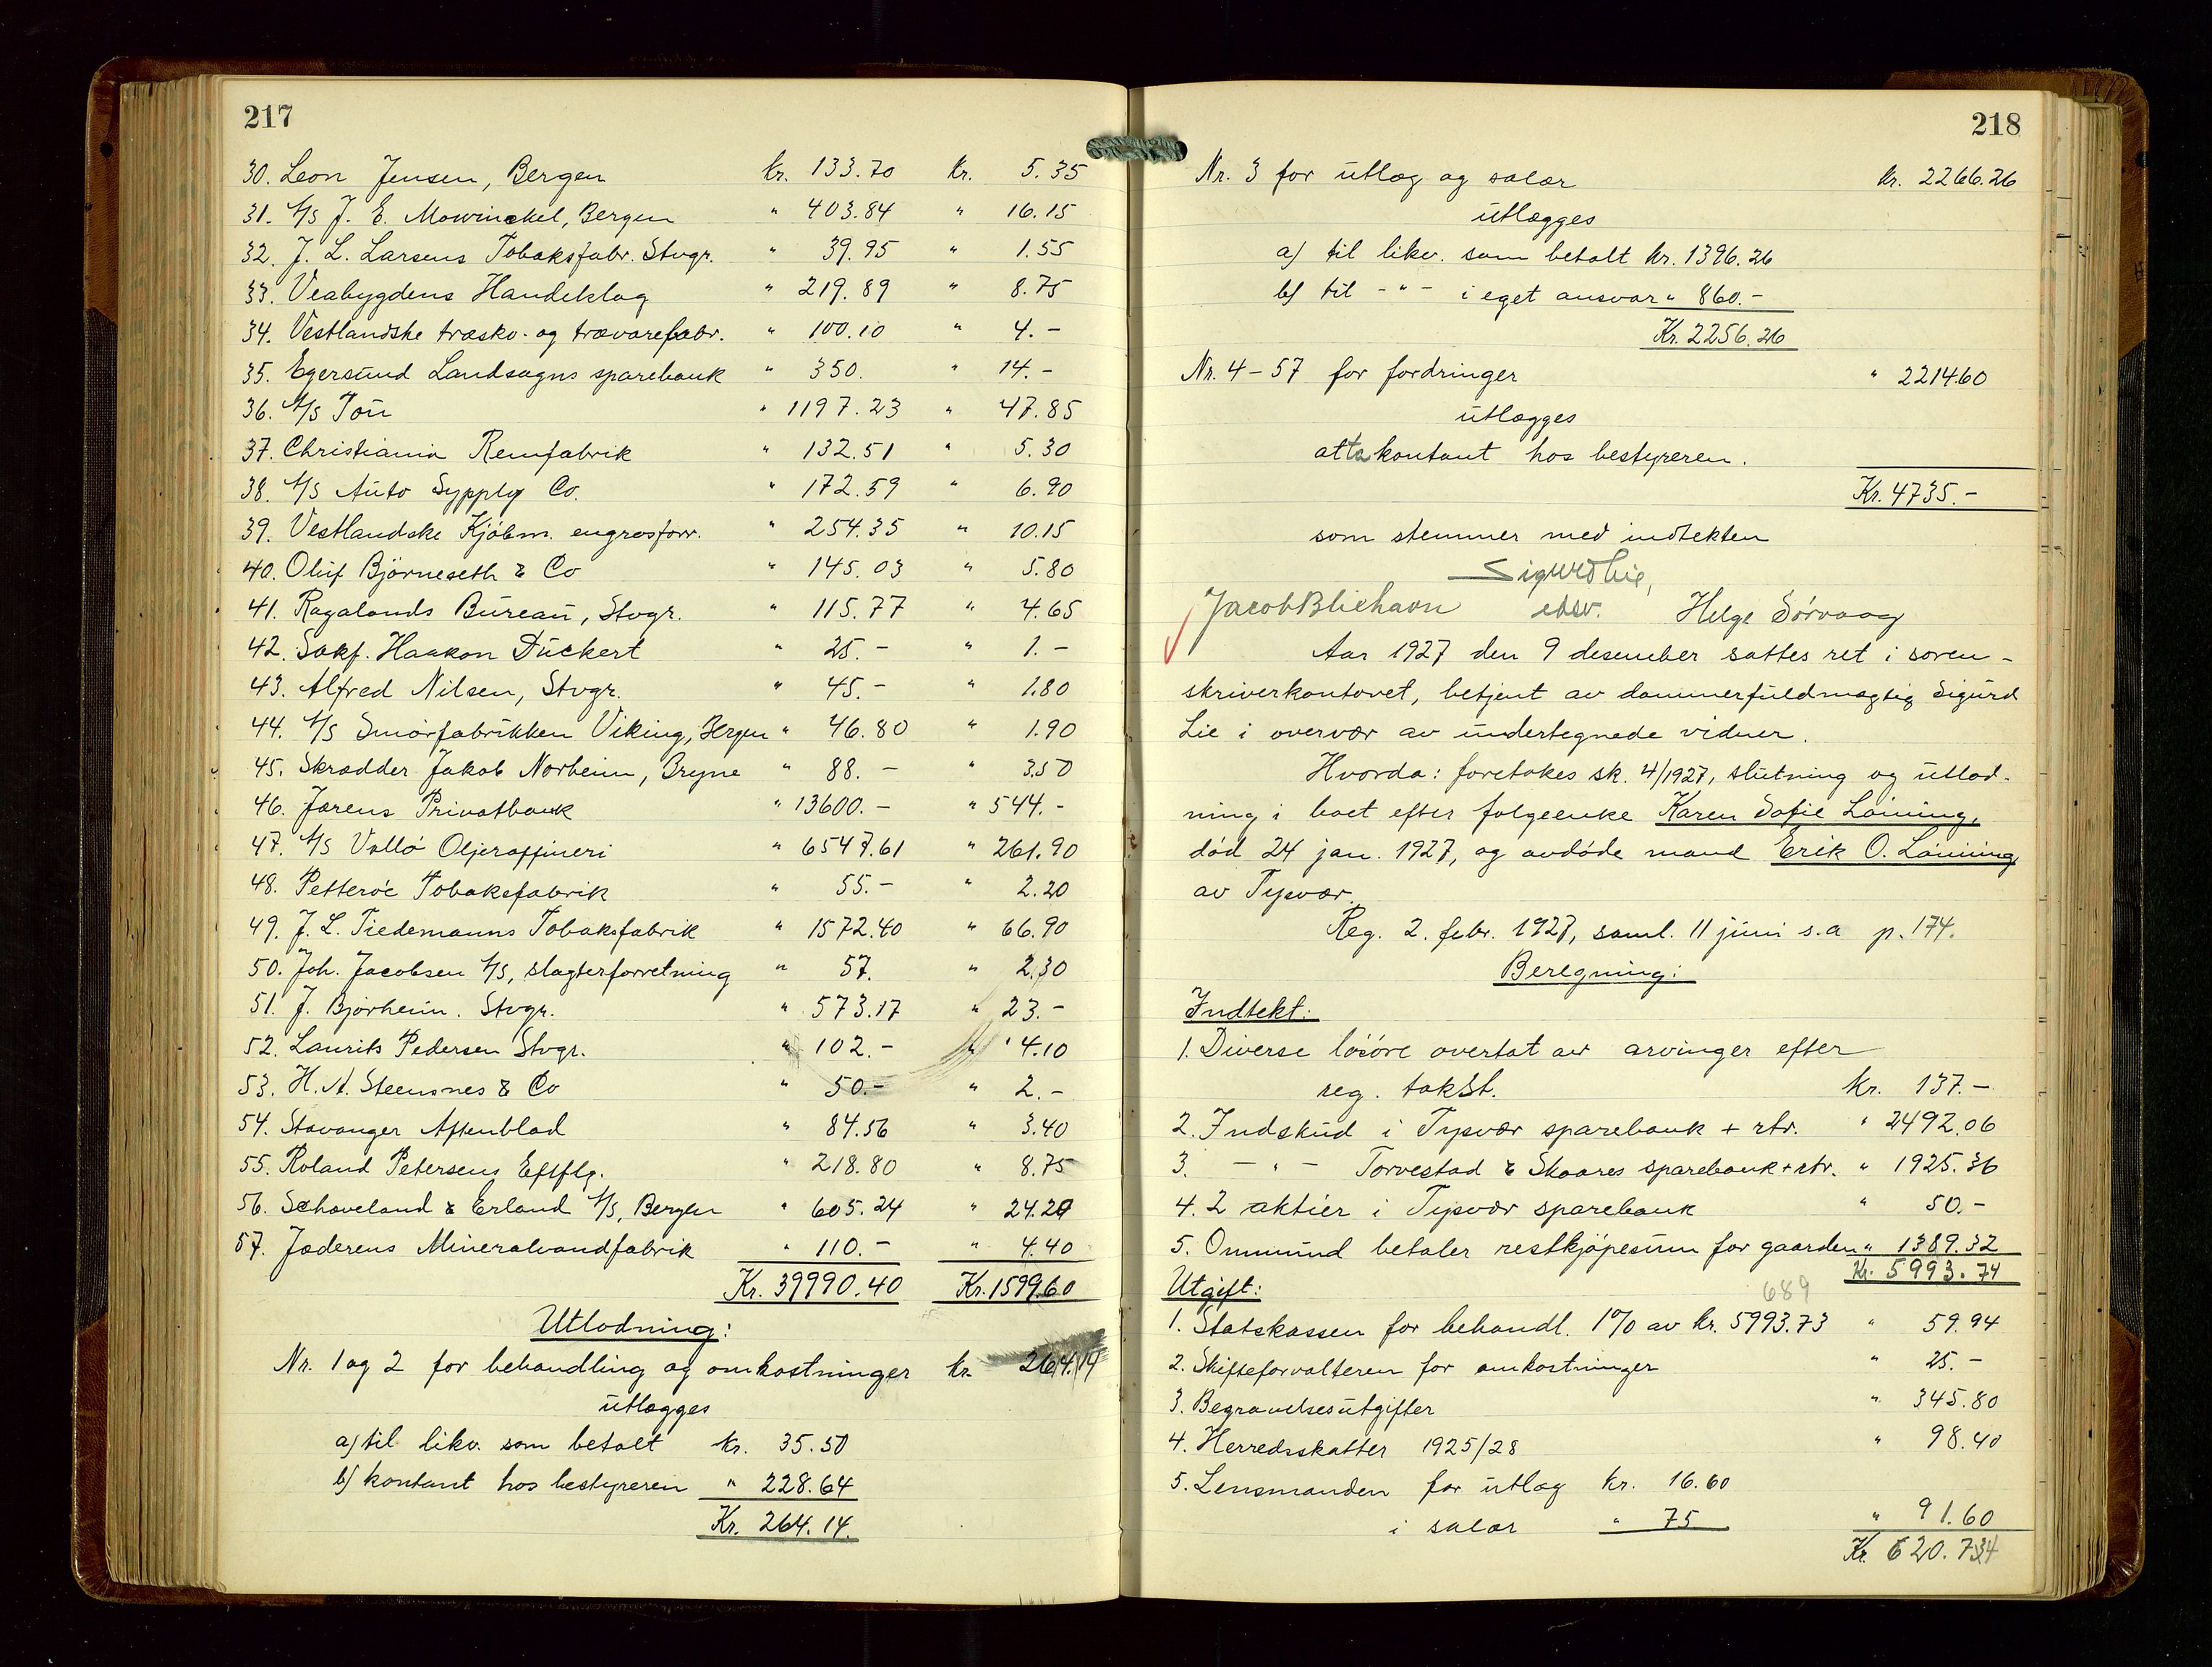 217
30. Leon Jensen, Bergen kr. 133.70 kr. 5.35
31. A/S J. E. Mowinckel, Bergen " 403.84 " 16.15
32. J. L. Larsens Tobaksfabr. Stvgr. " 39.95 " 1.55
33. Veabygdens Handelslag " 219.89 " 8.75
34. Vestlandske træsko- og trævarefabr. " 100.10 " 4.-
35. Egersund Landsogns sparebank " 350. " 14.-
36. A/S Tou " 1197.23 " 47.85
37. Christiania Remfabrik " 132.51 " 5.30
38. A/S Auto Sypply Co. " 172.59 " 6.90
39. Vestlandske Kjøbm. engrosforr. " 254.35 " 10.15
40. Oluf Bjørneseth & Co " 145.03 " 5.80
41. Rogalands Bureau, Stvgr. " 115.77 " 4.65
42. Sakf. Haakon Dückert " 25.- " 1.-
43. Alfred Nilsen, Stvgr. " 45.- " 1.80
44. A/S Smørfabrikken Viking, Bergen " 46.80 " 1.90
45. Skrædder Jakob Norheim, Bryne " 88.- " 3.50
46. Jærens Privatbank " 13600.- " 544.-
47. A/S Vallø Oljeraffineri " 6547.61 " 261.90
48. Petterøe Tobaksfabrik " 55.- " 2.20
49. J. L. Tiedemanns Tobaksfabrik " 1572.40 " 66.90
50. Joh. Jacobsen A/S, slagterforretning " 57. " 2.30
51. J. Bjørheim. Stvgr. " 573.17 " 23.-
52. Laurits Pedersen Stvgr. " 102.- " 4.10
53. H. A. Steensnes & Co " 50.- " 2.-
54. Stavanger Aftenblad " 84.56 " 3.40
55. Roland Petersens Eftflg. " 218.80 " 8.75
56. Schaveland & Erland A/S, Bergen " 605.24 " 24.20
57. Jæderens Mineralvandfabrik " 110.- " 4.40
Kr. 39990.40 Kr. 1599.60
Utlodning:
Nr. 1 og 2 for behandling og omkostninger kr. 264.14
utlægges
a) til likv. som betalt kr. 35.50
b) kontant hos bestyreren " 228.64
Kr. 264.14.
218
Nr. 3 for utlæg og salær kr. 2266.26
utlægges
a) til likv. som betalt kr. 1396.26
b) til - " - i eget ansvar " 860.-
Kr. 2256.26
Nr. 4-57 for fordringer " 2214.60
utlægges
atta kontant hos bestyreren.
Kr. 4735.-
som stemmer med indtekten
Sigurd Lie,
Jacob Bliehavn edsv. Helge Sørvaag
Aar 1927 den 9 desember sattes ret i soren-
skriverkontoret, betjent av dommerfuldmægtig Sigurd
Lie i overvær av undertegnede vidner.
Hvorda: foretokes sk. 4/1927, slutning og utlod-
ning i boet efter følgeenke Karen Sofie Lønning,
død 24 jan. 1927, og avdøde mand Erik O. Lønning
av Tysvær.
Reg. 2. febr. 1927, saml. 11 juni s.a p. 174.
Beregning:
Indtekt:
1. Diverse løsøre overtat av arvinger efter
reg. takst. kr. 137.-
2. Indskud i Tysvær sparebank + rtr. " 2492.06
3. - " - Torvestad & Skaares sparebank + rtr. " 1925.36
4. 2 aktier i Tysvær sparebank " 50.-
5. Ommund betaler restkjøpesum for gaarden " 1389.32
Kr. 5993.74
Utgift: 689
1. Statskassen for behandl. 1% av kr. 5993.73 " 59.94
2. Skifteforvalteren for omkostninger " 25.-
3. Begravelsesutgifter " 345.80
4. Herredsskatter 1925/28 " 98.40
5. Lensmanden for utlæg kr. 16.60
i salær " 75 " 91.60
Kr. 620.74